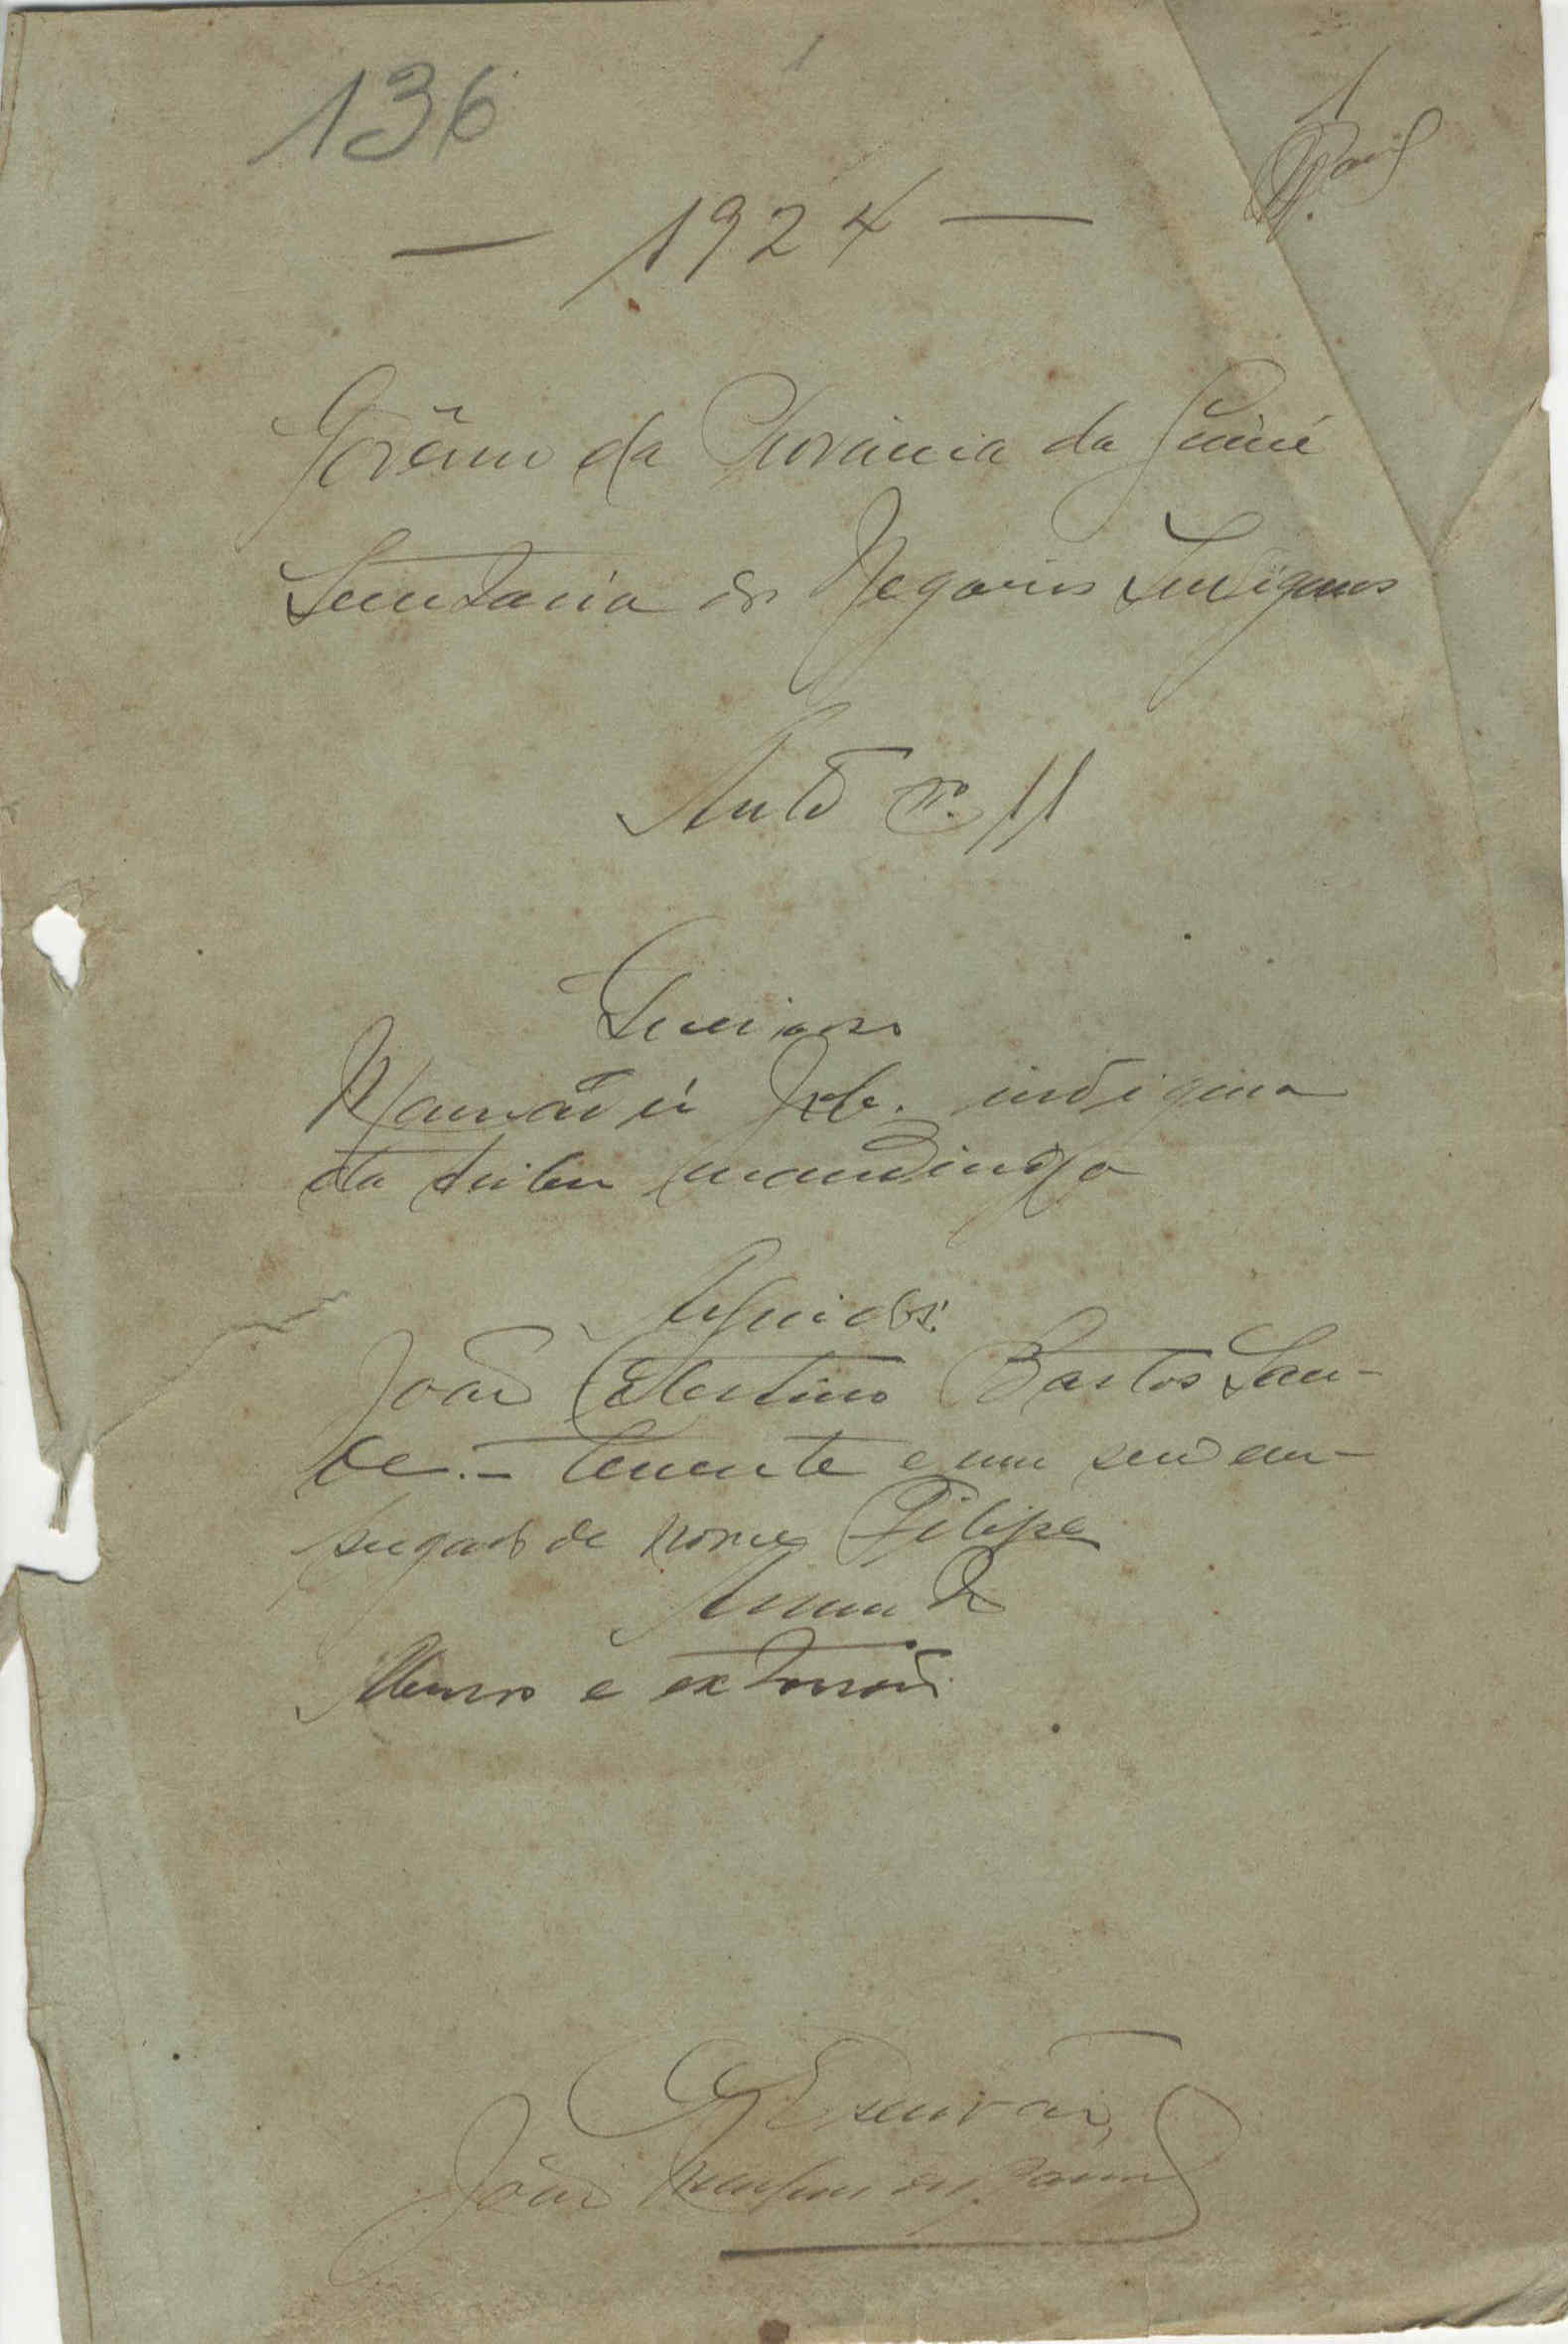 136
1
— 1924 —
Govêrno da Provincia da Guiné
Secretaria dos Negocios Indigenas
Auto nº. 11
Queixoso
indigena
da tribu mandinga
Arguidos:
João Celestino Bastos San-
ce. — Tenente e um seu em-
pregado de nome Filipe
Assunto
Abuso e extorsão
O Escrivão,
João